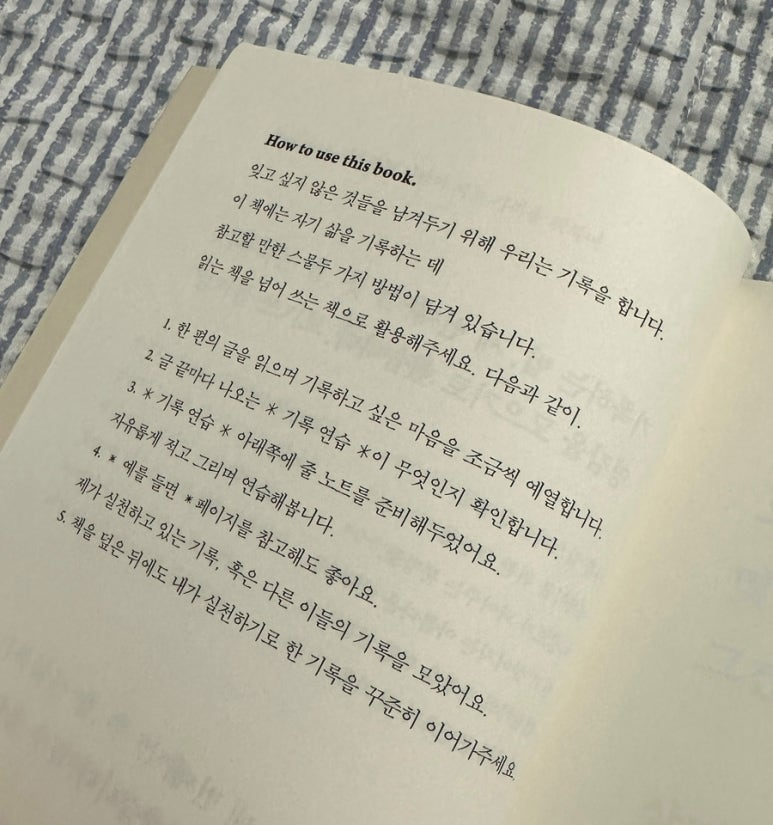 How to use this book.
잊고 싶지 않은 것들을 남겨두기 위해 우리는 기록을 합니다.
이 책에는 자기 삶을 기록하는 데
참고할 만한 스물두 가지 방법이 담겨 있습니다.
읽는 책을 넘어 쓰는 책으로 활용해주세요. 다음과 같이.
1. 한 편의 글을 읽으며 기록하고 싶은 마음을 조금씩 예열합니다.
2. 글 끝마다 나오는 * 기록 연습 *이 무엇인지 확인합니다.
3. * 기록 연습 * 아래쪽에 줄 노트를 준비해두었어요.
자유롭게 적고 그리며 연습해봅니다.
4. * 예를 들면 * 페이지를 참고해도 좋아요.
제가 실천하고 있는 기록, 혹은 다른 이들의 기록을 모았어요.
5. 책을 덮은 뒤에도 내가 실천하기로 한 기록을 꾸준히 이어가주세요